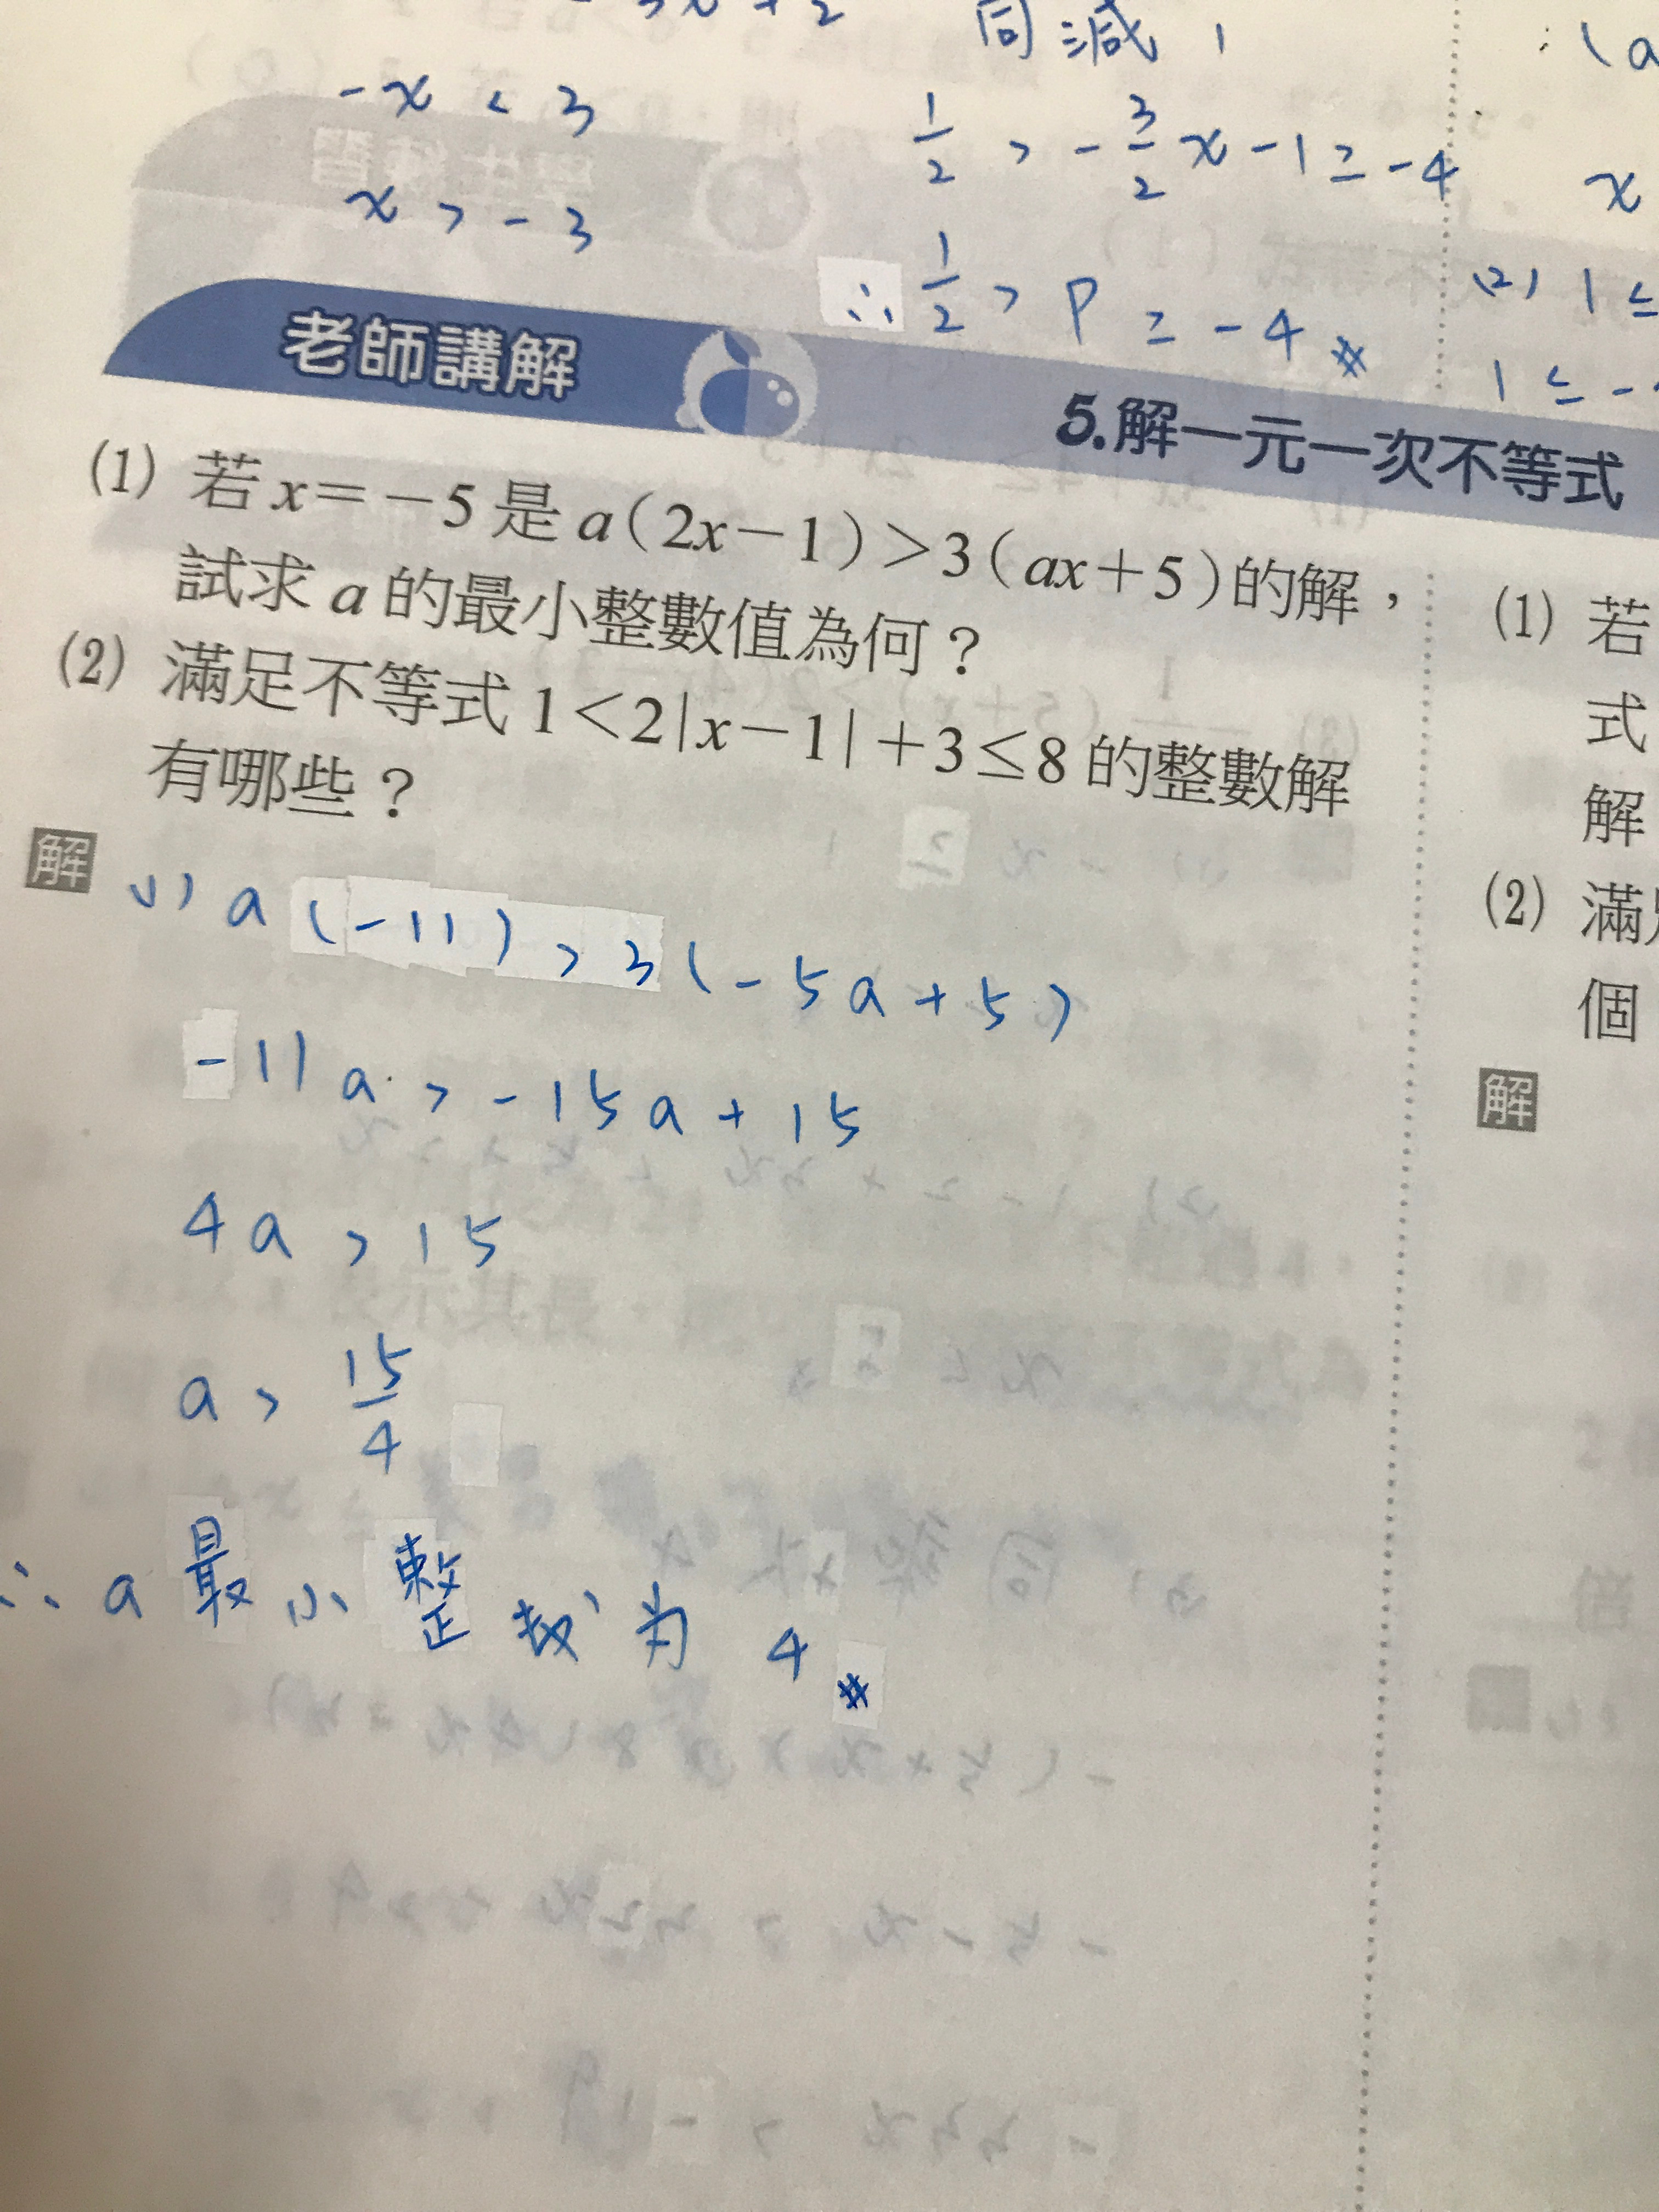 同減 1
-x < 3
1/2 > -3/2 x - 1 ≥ -4
x > -3
∴ 1/2 > P ≥ -4 #
(2) 1 ≤
1 ≤ -
老師講解
5.解一元一次不等式
(1) 若 x=-5 是 a(2x-1)>3(ax+5)的解，
試求 a 的最小整數值為何？
(2) 滿足不等式 1<2|x-1|+3≤8 的整數解
有哪些？
解
(1) a(-11) > 3(-5a+5)
-11a > -15a + 15
4a > 15
a > 15/4
∴ a 最小整数为 4 #
(1) 若
式
解
(2) 滿
個
解